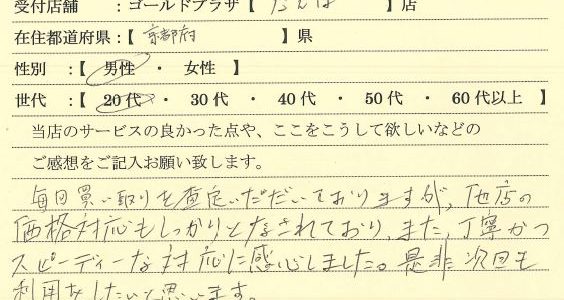 受付店舗 :ゴールドプラザ【 なんば 】店
在住都道府県:【 京都府 】県
性別 :【 男性 ・ 女性 】
世代 :【 20代 ・ 30代 ・ 40代 ・ 50代 ・ 60代以上 】
当店のサービスの良かった点や、ここをこうして欲しいなどの
ご感想をご記入お願い致します。
毎回買い取りを査定いただいておりますが、他店の
価格対応もしっかりとなされており、また、丁寧かつ
スピーディーな対応に感心しました。是非次回も
利用をしたいと思います。